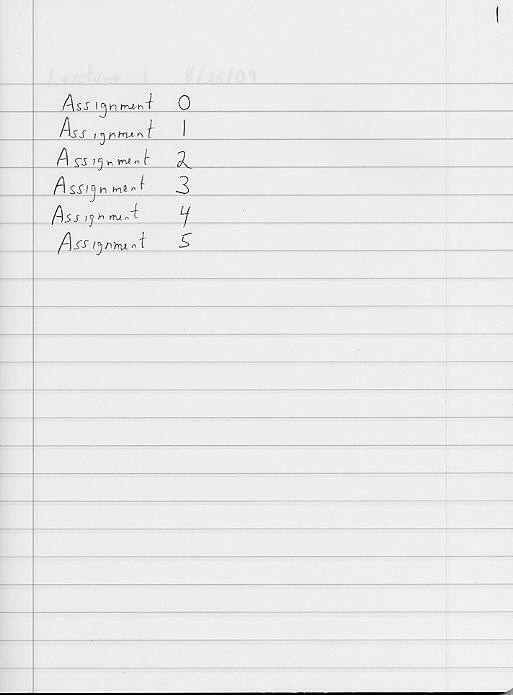 1
Lecture 1 8/26/09
Assignment 0
Assignment 1
Assignment 2
Assignment 3
Assignment 4
Assignment 5